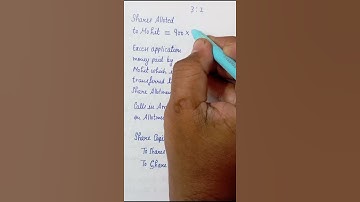 3:2
Shares Alloted
to Mohit = 900 ×
Excess application
money paid by
Mohit which
transferred t
Share Allotmen
Calls in Arr
on Allotm
Share Capi
To Share
To Share